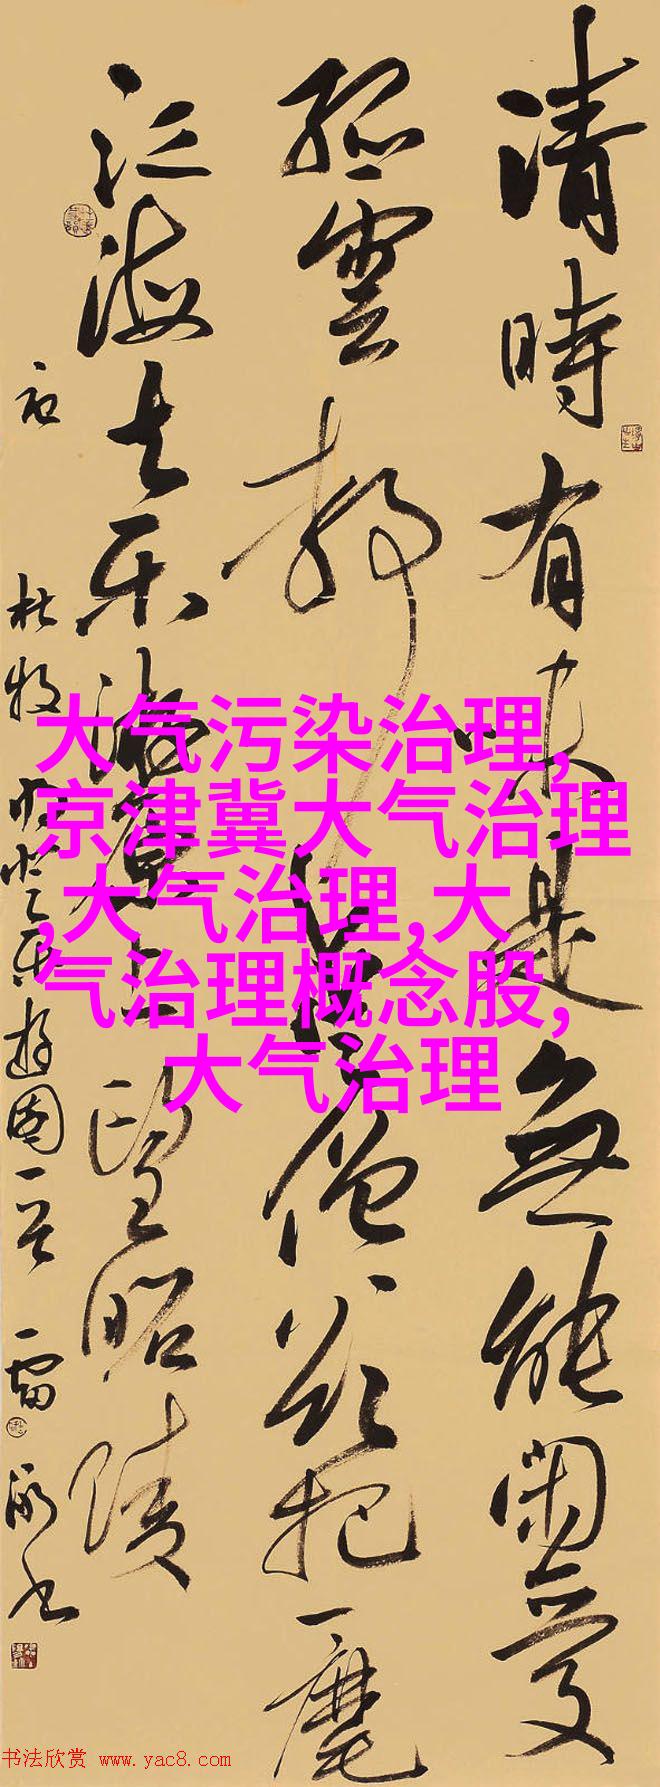 清時有味是無能閑愛
孤雲静愛僧欲把一麾
江海去乐游原上望昭陵
杜牧
大气污染治理,
京津冀大气治理
,大气治理,大
气治理概念股,
大气治理
书法欣赏 www.yac8.com